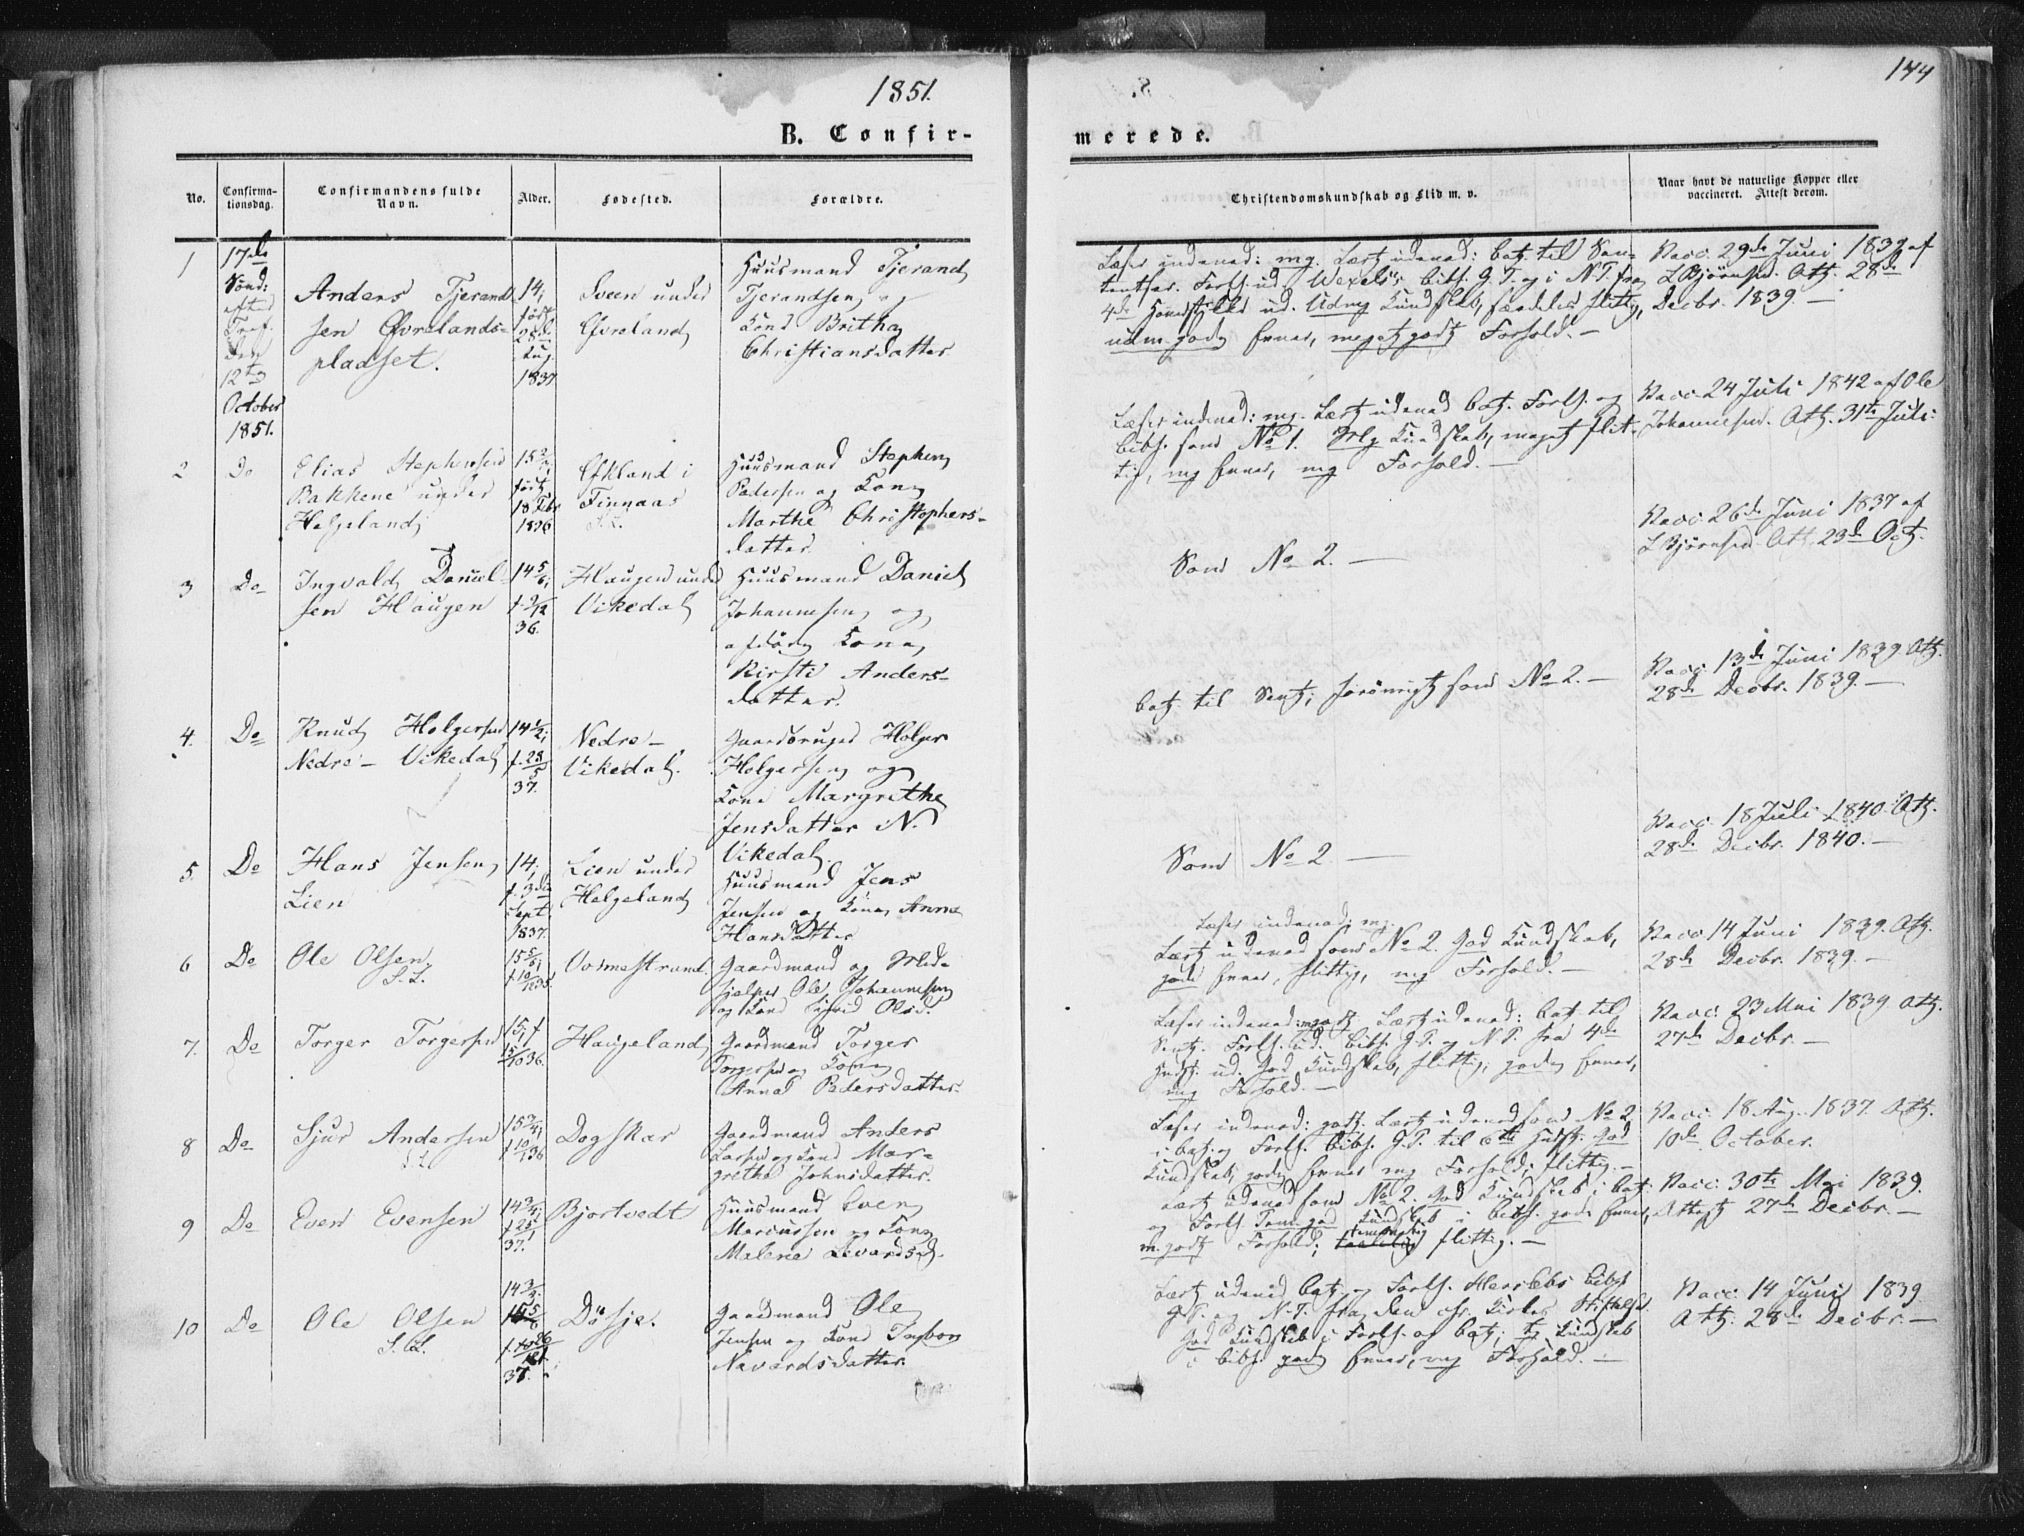 1851.
144
B. Confir-
merede.
No.
Confirma-
tionsdag.
Confirmandens fulde
Navn.
Alder.
Fødested.
Forældre.
Christendomskundskab og Flid m. v.
Naar havt de naturlige Kopper eller
vaccineret. Attest derom.
1
17de
Sønd:
efter
Tref.
den
12te
October
1851.
Anders Tjerand
sen Øvrelands-
pladset.
14,
født
28de
Aug.
1837
Sveen under
Øvreland
Huusmand Tjerand
Tjerandsen og
Kone Britha
Christiansdatter
Læser indenad: mg. Lært udenad: Cat. til Sen-
tentser. Forkl. ud. Wexels's bibh. G. T. og i N. T. fra
4de Hovedstykke ud. Udmg Kundskab, særdeles flittig,
udm. gode Evner, meget godt Forhold. —
Vacc. 29de Juni 1839 af
L Bjørnsen. Att. 28de
Decbr. 1839. —
2
Do
Elias Stephensen
Bakkene under
Helgeland
født
18 Febr
1836
i
Finnaas
S. L.
Huusmand Stephen
Pedersen og Kone
Marthe Christophers-
datter.
Læser indenad: mg. Lært udenad Cat. Forkl. og
bibh. som No 1. Mg Kundskab, meget flit-
tig, mg Evner, mg Forhold. —
Vacc. 24 Juli 1842 af Ole
Johannesen. Att. 31te Juli.
3
Do
Ingvald Daniel-
sen Haugen
14 5/6,
f. 2/12
36.
Haugen under
Vikedal
Huusmand Daniel
Johannesen og
afdøde Kone
Kirsti Anders-
datter.
Som No 2. —
Vacc. 26de Juni 1837 af
L Bjørnsen. Att. 23de Oct.
4.
Do
Knud Holgersen
Nedre - Vikedal
14 1/2,
f. 23/5
37.
Nedre -
Vikedal.
Gaardbruger Holger
Holgersen og
Kone Margrethe
Jensdatter N.
Vikedal.
Cat. til Sent; forøvrigt som No 2. —
Vacc. 13de Juni 1839. Att.
28de Decbr. 1839. —
5.
Do
Hans Jensen
Lien
14,
f. 3de
Sept.
1837.
Lien under
Helgeland
Huusmand Jens
Jensen og Kone Anna
Hansdatter
Som No 2. —
Vacc. 18 Juli 1840. Att.
28de Decbr. 1840. —
6
Do
Ole Olsen
S. L.
15 5/6,
Vormestrand
Gaardmand og Med-
hjelper Ole Johannesen
og Kone Sigrid Olsd.
Læser indenad: mg.
Lært udenad som No 2. God Kundskab,
gode Evner, flittig, mg Forhold. —
Vacc. 14 Juni 1839. Att.
28de Decbr. 1839. —
7.
Do
Torger Torgersen
15, f
15/10 36.
Haugeland
Gaardmand Torger
Torgersen og Kone
Anna Pedersdatter.
Læser indenad: Lært udenad: Cat. til
Sent. Forkl. ud. bibh. G. T. og N. T. fra 4de
Hvdst. ud. God Kundskab, flittig, gode Evner,
mg Forhold. —
Vacc. 23 Mai 1839 Att.
27de Decbr. —
8
Do
Sjur Andersen
S. L.
15 3/4,
f 10/1 36
Dogskar
Gaardmand Anders
Larsen og Kone Mar-
grethe Johnsdatter.
Læser indenad: godt. Lært udenad som No 2
i Cat. og Forkl. bibh. G. T. til 6te Hvdst. God
Kundskab, gode Evner mg Forhold, flittig. —
Vacc. 18 Aug. 1837. Att.
10de October.
9
Do
Even Evensen
14 3/4,
f 25/1
37.
Bjortvedt
Huusmand Even
Marcussen og Kone
Malene
Lært udenad som No 2. God Kundskab i Cat.
og Forkl. Tem. god Kundskab i bibh. gode Evner,
m. godt Forhold; temmelig flittig. —
Vacc. 30te Mai 1839.
Attest 27de Decbr. —
10
Do
Ole Olsen
S. L.
14 3/4.
37.
Døsje.
Gaardmand Ole
Jensen og Kone Ingbor
Navardsdatter.
Lært udenad Cat. og Forkl. Herslebs bibh
G. T. og N. T. fra den chr. Kirkes Stiftelse.
God Kundskab i Forkl. og Cat; tg Kundskab
i bibh. gode Evner, mg Forhold. —
Vacc. 14 Juni 1839
Att. 28de Decbr. —